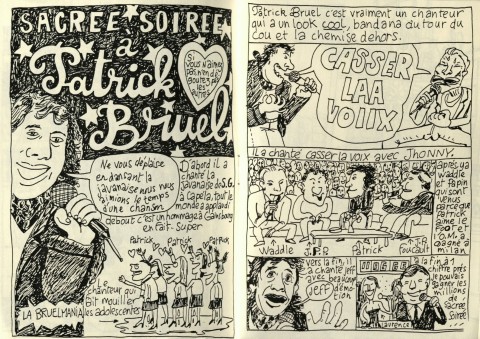 SACRÉE SOIRÉE
à
Patrick
Bruel
Si
vous n'aimez
pas n'en dé
goutez pas
les
autres
Ne vous déplaise
en dansant la
javanaise nous nous
aimions le temps
d'une chanson
D'abord il a
chanté la
Javanaise de S.G.
à Capela, tout le
monde a applaudi
debout c'est un hommage à Gainsbourg
en fait. Super
Patrick
Patrick
Patrick
chanteur qui
fait mouiller
les adolescentes
LA BRUELMANIA
Patrick Bruel c'est vraiment un chanteur
qui a un look cool, bandana autour du
cou et la chemise dehors.
CASSER
LAA
VOIIX
il a chanté casser la voix avec JHONNY.
après ya
Waddle
et Papin
qui sont
venus
parce que
Patrick
aime le
foot et
l'O.M. a
gagné à
milan
Waddle
J.P.P
Patrick
J.P.
Foucault
Vers la fin, il
a chanté Jeff
avec beaucoup
d'émotion
Jeff
à la fin à 1
chiffre près
je pouvais
gagner les
millions
de
Sacrée
Soirée
Laurence